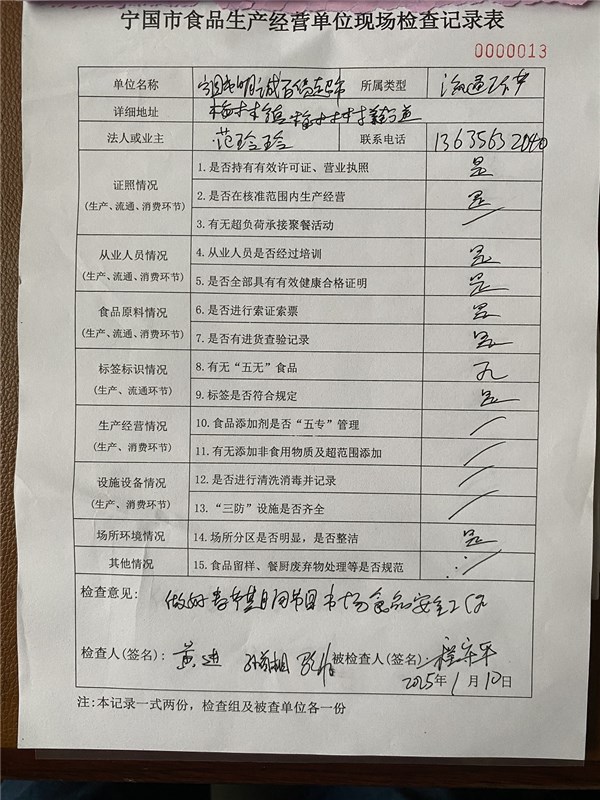 宁国市食品生产经营单位现场检查记录表
0000013
单位名称 宁国市明诚百货超市 所属类型
详细地址 梅林镇梅林村
法人或业主 范玲玲 联系电话 13635632040
证照情况 (生产、流通、消费环节)
1.是否持有有效许可证、营业执照 是
2.是否在核准范围内生产经营 是
3.有无超负荷承接聚餐活动 /
从业人员情况 (生产、流通、消费环节)
4.从业人员是否经过培训 是
5.是否全部具有有效健康合格证明 是
食品原料情况 (生产、流通、消费环节)
6.是否进行索证索票 是
7.是否有进货查验记录 是
标签标识情况 (生产、流通环节)
8.有无“五无”食品 无
9.标签是否符合规定 是
生产经营情况 (生产、消费环节)
10.食品添加剂是否“五专”管理 /
11.有无添加非食用物质及超范围添加 /
设施设备情况 (生产、消费环节)
12.是否进行清洗消毒并记录 /
13.“三防”设施是否齐全 /
场所环境情况 14.场所分区是否明显，是否整洁 是
其他情况 15.食品留样、餐厨废弃物处理等是否规范 /
检查意见: 做好春节期间节日市场食品安全工作
检查人(签名): 黄进 被检查人(签名):
2025年1月10日
注:本记录一式两份，检查组及被查单位各一份